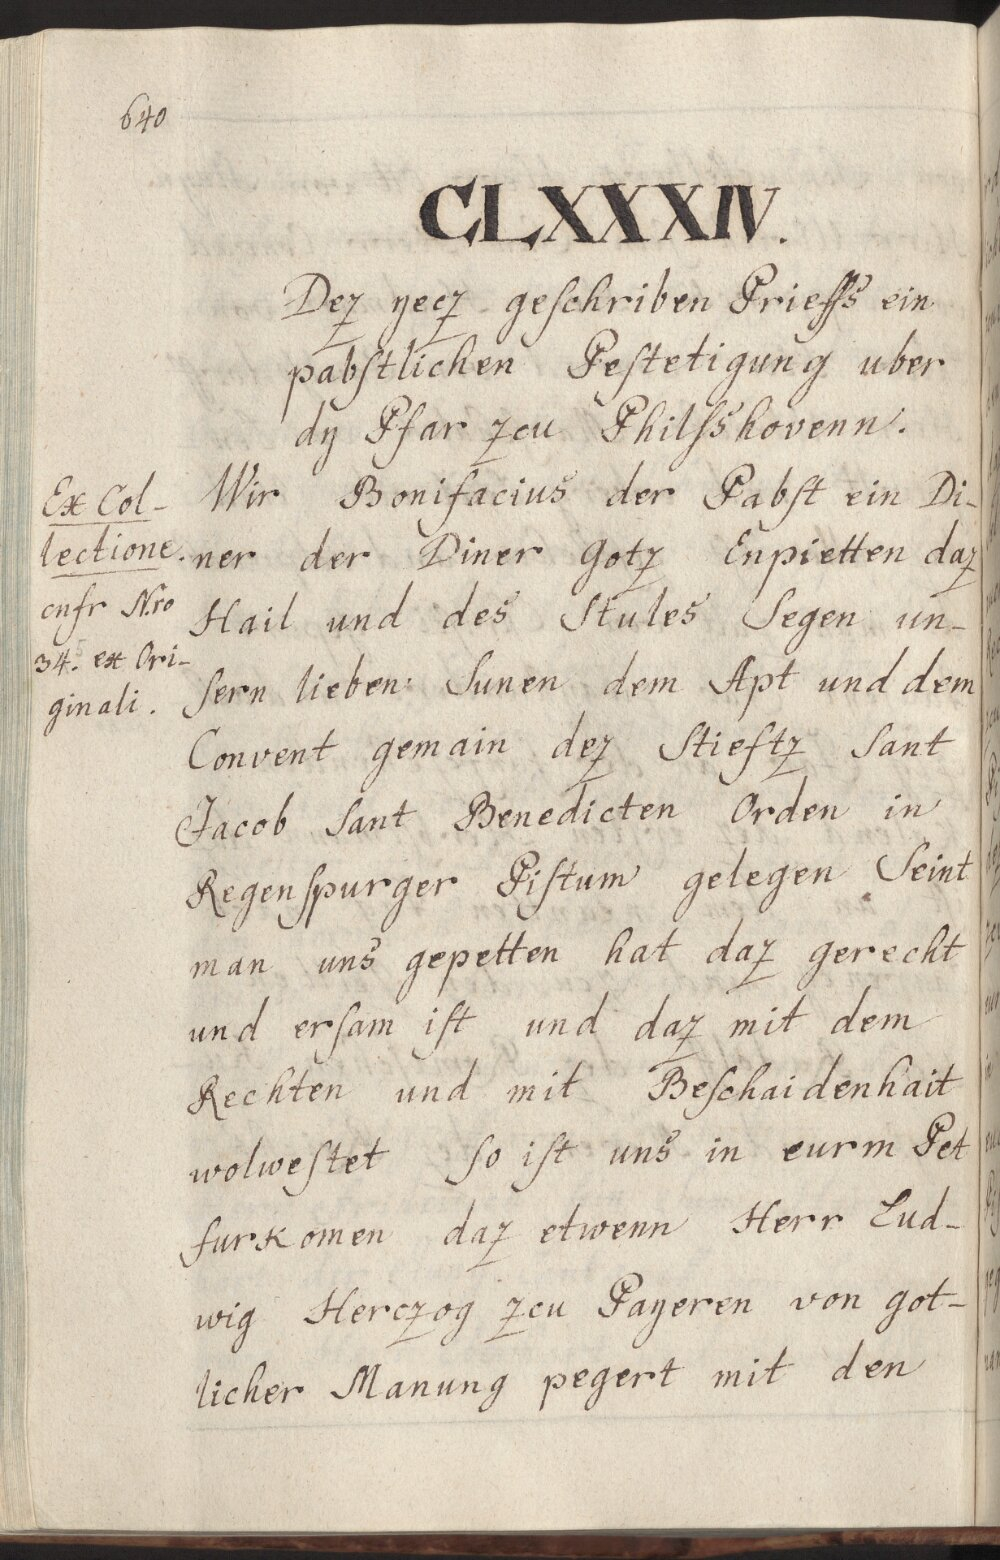 640
CLXXXIV.
Dez yecz geschriben Prieffs ein
pabstlichen Pestetigung uber
dy Pfar zcu Philsshovenn.
Ex Col-
lectione.
cnfr Nro
34. ex Ori-
ginali.
Wir Bonifacius der Pabst ein Di-
ner der Diner Gotz Enpietten daz
Hail und des Stules Segen un-
sern lieben Sunen dem Apt und dem
Convent gemain dez Stieftz Sant
Jacob Sant Benedicten Orden in
Regenspurger Pistum gelegen Seint
man uns gepetten hat daz gerecht
und ersam ist und daz mit dem
Rechten und mit Beschaidenhait
wolwestet so ist uns in eurm Pet
furkomen daz etwenn Herr Lud-
wig Herczog zcu Payeren von got-
licher Manung pegert mit den